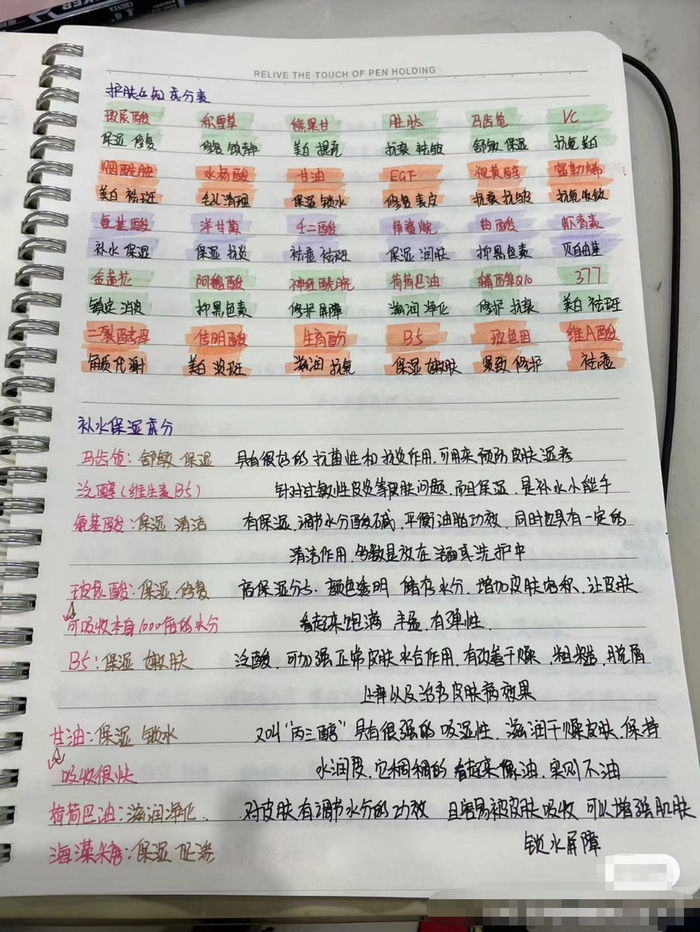 RELIVE THE TOUCH OF PEN HOLDING
护肤必知成分表
玻尿酸 积雪草 熊果甘 胜肽 马齿苋 VC
保湿 修复 修复 镇静 美白 提亮 抗衰 祛皱 舒敏 保湿 抗氧 美白
烟酰胺 水杨酸 甘油 EGF 视黄醇 富勒烯
美白 祛斑 毛孔清理 保湿 锁水 修复 表皮 抗衰 抗皱 抗氧
氨基酸 洋甘菊 壬二酸 角鲨烷 曲酸 虾青素
补水 保湿 保湿 抗炎 祛痘 祛斑 保湿 润肤 抑黑色素 灭自由基
金盏花 阿魏酸 神经酰胺 荷荷巴油 辅酶Q10 377
镇定 消炎 抑黑色素 修护 屏障 滋润 净化 修护 抗衰 美白 祛斑
二裂酵母 传明酸 生育酚 B5 玻色因 维A酸
角质代谢 美白 淡斑 滋润 抗氧 保湿 嫩肤 紧致 修护 祛痘
补水保湿成分
马齿苋: 舒敏 保湿 具有很好的抗菌性和抗炎作用, 可用来预防皮肤湿疹
泛醇(维生素B5) 针对过敏性皮炎等皮肤问题, 而且保湿, 是补水小能手
氨基酸: 保湿 清洁 有保湿, 调节水分酸碱, 平衡油脂功效, 同时也具有一定的
清洁作用, 多数是放在洁面其洗护中
玻尿酸: 保湿 修复 高保湿分子, 颜色透明 储存水分, 增加皮肤容积, 让皮肤
可吸收本身1000倍的水分 看起来饱满 丰盈, 有弹性.
B5: 保湿 嫩肤 泛酸, 可加强正常皮肤水合作用, 有改善干燥 粗糙, 脱屑
止痒以及治疗皮肤病效果
甘油: 保湿 锁水 又叫“丙三醇”具有很强的吸湿性, 滋润干燥皮肤, 保持
吸收很快 水润度, 它稠稠的 看起来像油, 实则不油
荷荷巴油: 滋润净化. 对皮肤有调节水分的功效 且容易被皮肤吸收 可以增强肌肤
锁水屏障
海藻糖: 保湿